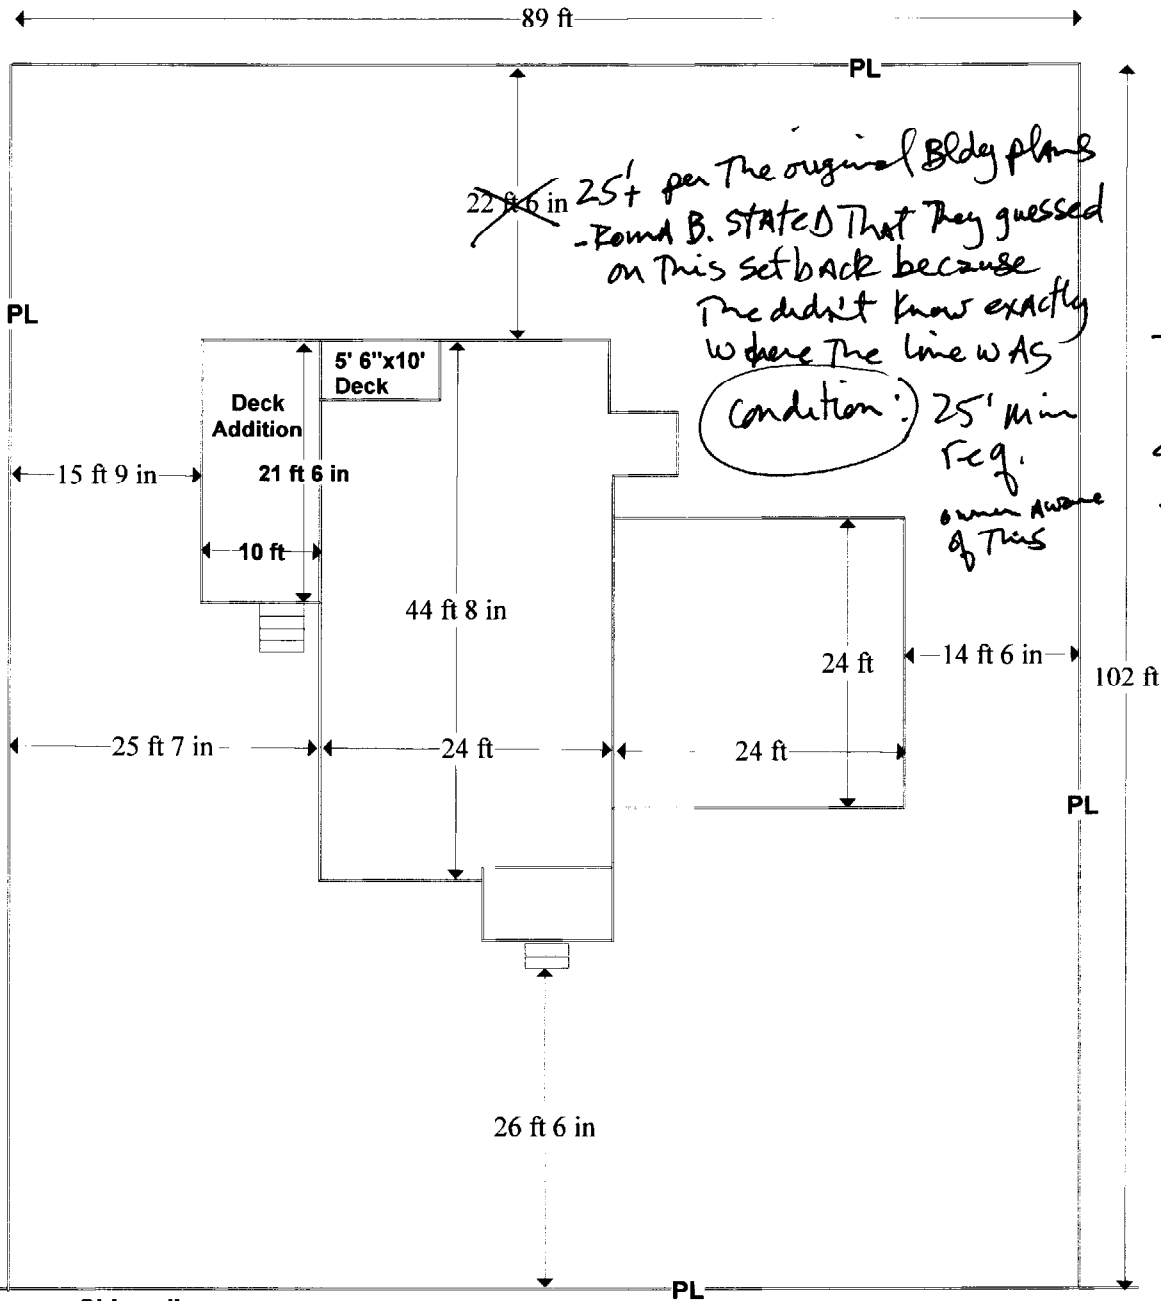 89 ft
PL
22 ft 6 in
25'+ per The original Bldg plans
B. STATED That They guessed
on This setback because
The didn't know exactly
where The line wAS
condition: 25' Min
req.
owner Aware
of This
PL
5' 6"x10'
Deck
Deck
Addition
15 ft 9 in
21 ft 6 in
10 ft
44 ft 8 in
24 ft
14 ft 6 in
102 ft
25 ft 7 in
24 ft
24 ft
PL
26 ft 6 in
PL